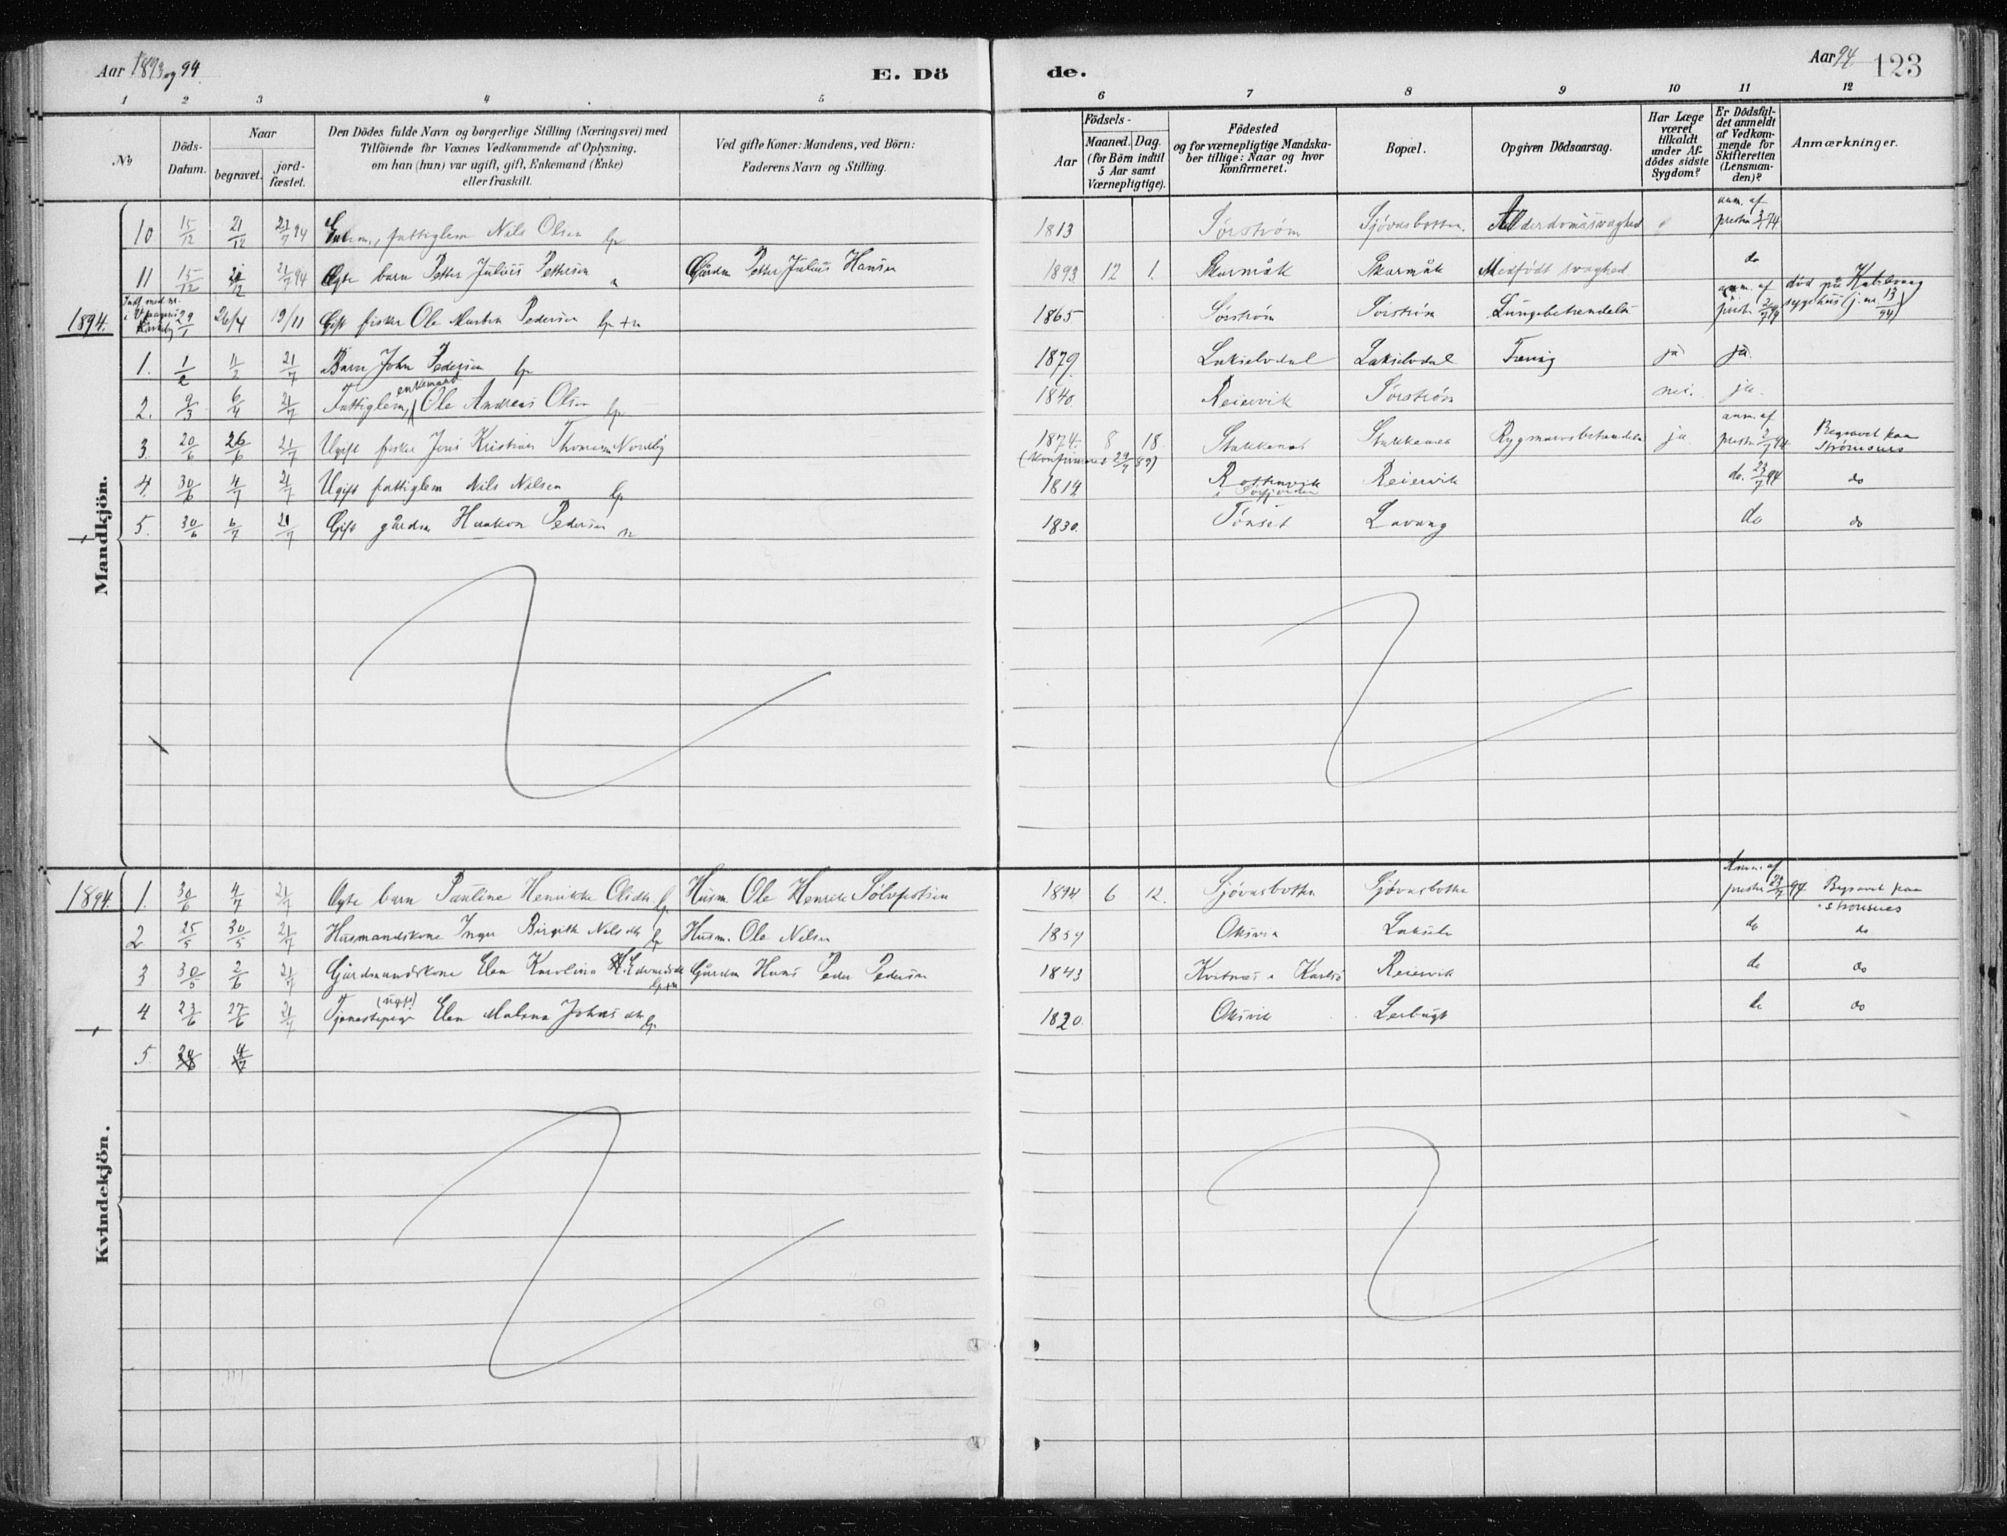 Aar 1893 og 94.
E. Dö
de.
Aar 94. 123
1 2 3 4 5 6 7 8 9 10 11 12
No
Döds-Datum.
Naar
begravet.
jord-fæstet.
Den Dödes fulde Navn og borgerlige Stilling (Næringsvei) med
Tilföiende för Voxnes Vedkommende af Oplysning,
om han (hun) var ugift, gift, Enkemand (Enke)
eller fraskilt.
Ved gifte Koner: Mandens, ved Börn:
Faderens Navn og Stilling.
Födsels-
Aar
Maaned. Dag.
(for Börn indtil
5 Aar samt
Værnepligtige).
Födested
og for værnepligtige Mandska-
ber tillige: Naar og hvor
konfirmeret.
Bopæl.
Opgiven Dödsaarsag.
Har Læge
været
tilkaldt
under Af-
dödes sidste
Sygdom?
Er Dödsfal-
det anmeldt
af Vedkom-
mende for
Skifteretten
(Lensman-
den)?
Anmærkninger.
Mandkjön.
10 15/12 21/12 21/7 94 fattiglem Nils Olsen lp 1813 Sørstrøm Sjøvasbotten. Alderdomssvaghed anm. af presten 3/2 94
11 15/12 21/12 21/7 94 Ægte barn Petter Julius Pettersen n Gårdm Petter Julius Hansen 1893 12 1. Skarmåk Skarmåk Medfødt svaghed do
1894. 29/1 26/4 19/11 Gift fisker Ole Morten Pedersen lp+n 1865 Sørstrøm Sørstrøm Lungebetændelse anm. af død på sygehus (j.nr. 13/94)
1. 1/2 11/2 21/7 Barn John Pedersen lp 1879 Lakselvdal Lakselvdal Tæring ja ja.
2. 9/3 6/4 21/7 Fattiglem, enkemand Ole Andreas Olsen lp 1840. Reiervik Sørstrøm nei. ja.
3. 20/6 26/6 21/7 Ugift fisker Jens Kristian Thomassen Nordby 1874. 8 18. (Konfirmeret 29/9 89) Stakkenes Stakkenes Rygmarvsbetændelse ja anm. af presten 2/7 94 Begravet paa Strømsnes
4. 30/6 4/7 21/7 Ugift fattiglem Nils Nilsen lp 1814 Rottenvik i Sørfjorden Reiervik do. 23/7 94 do
5. 30/6 6/7 21/7 Gift gårdm Haakon Pedersen n 1830. Tønset Lavang do do
Kvindekjön.
1894. 1. 30/6 4/7 21/7 Ægte barn Pauline Henrikke Olsdtr lp Husm. Ole Henrik Sølvfestsen 1894 6 12. Sjøvasbotten Sjøvasbotten Anm. af presten 23/7 94 Begravet paa Strømsnes
2 25/5 30/5 21/7 Husmandskone Inger Birgith Nilsdtr lp Husm. Ole Nilsen 1859 Oksvik Lakselv do do
3 30/5 2/6 21/7 Gårdmandskone Elen Karolina Edvardsdtr lp+n Gårdm Hans Peder Pedersen 1843 Kvitnes i Karlsø Reiervik do do
4 23/6 27/6 21/7 Tjenestepige (ugift) Elen Malena Johnsdtr lp 1820. Oksvik Lerbugt do do
5. 30/6 4/7